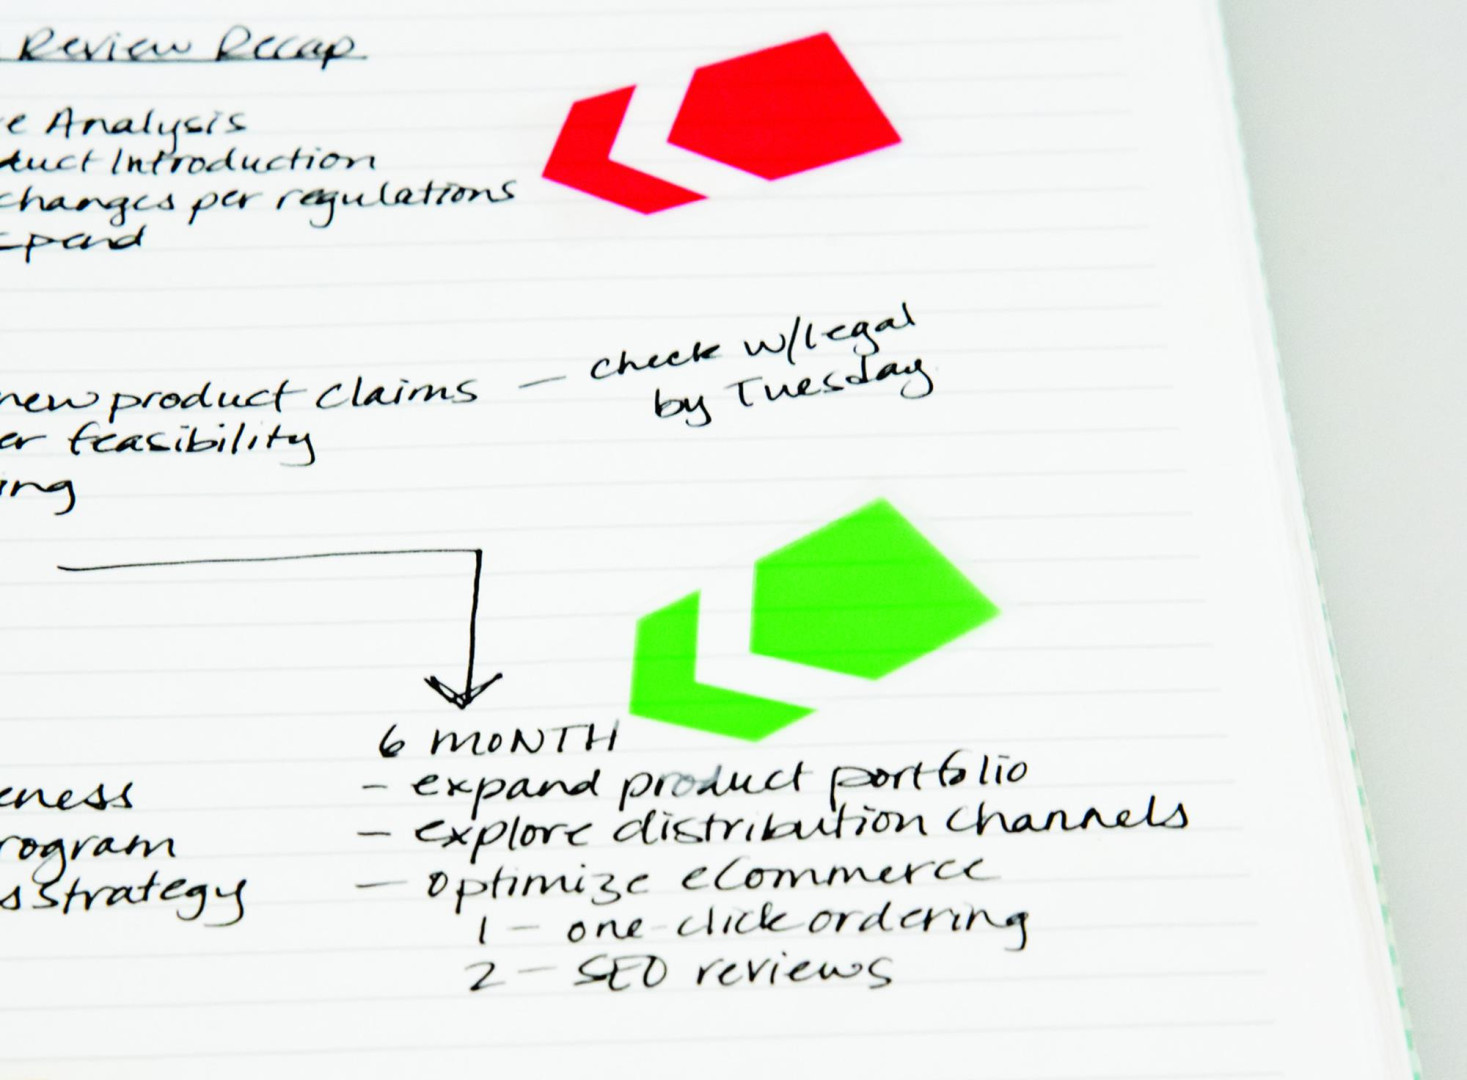 Review Recap
e Analysis
duct Introduction
changes per regulations
spend
new product claims — check w/legal
by Tuesday
er feasibility
ing
6 MONTH
- expand product portfolio
eness
- explore distribution channels
rogram
- optimize eCommerce
s strategy
1 - one-click ordering
2 - SEO reviews